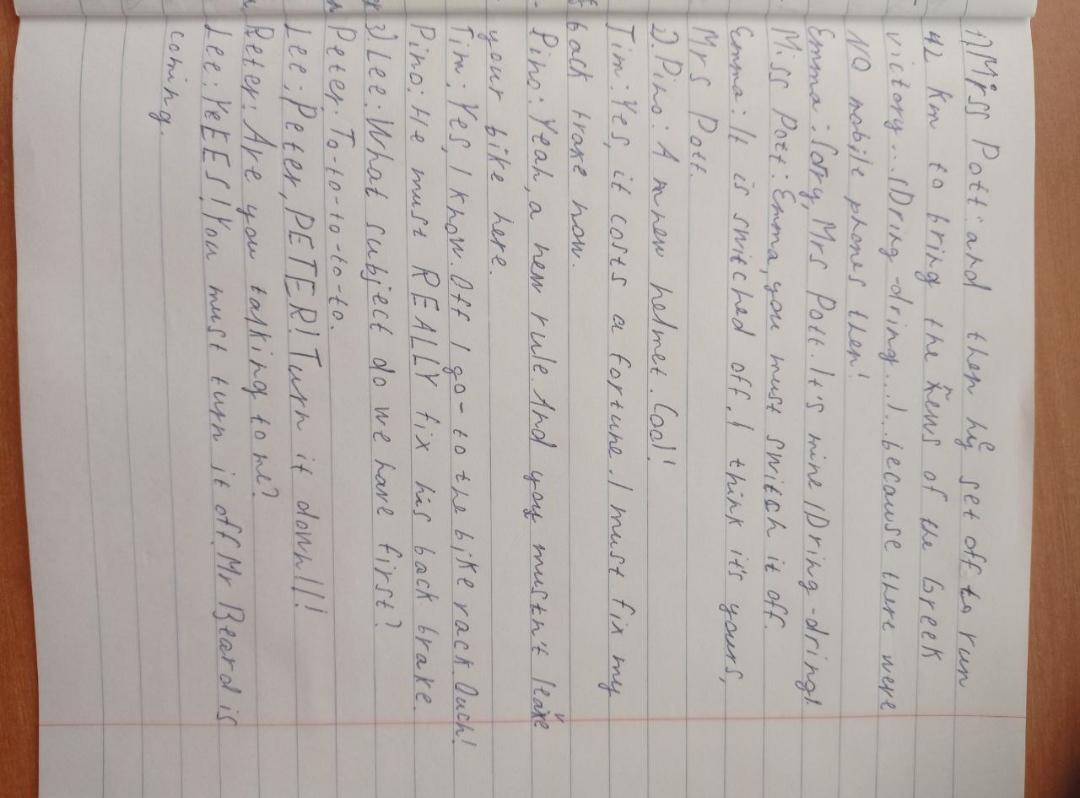 1) Mrss Pott: and then he set off to run
42 km to bring the news of the Greek
victory... /Dring-dring.../... because there were
NO mobile phones then!
Emma: Sorry, Mrs Pott. It's mine /Dring-dring/
Miss Pott: Emma, you must switch it off.
Emma: It is switched off. I think it's yours,
Mrs Pott.
2) Pino: A mnew helmet. Cool!
Tim: Yes, it costs a fortune. I must fix my
back brake now.
Pino: Yeah, a new rule. And you mustn't leave
your bike here.
Tim: Yes, I know. Off I go - to the bike rack. Ouch!
Pino: He must REALLY fix his back brake.
3) Lee: What subject do we have first?
Peter: To-to-to-to-to.
Lee: Peter, PETER! Turn it down!!!
Peter: Are you talking to me?
Lee: YeEES! You must turn it off. Mr Beard is
coming.